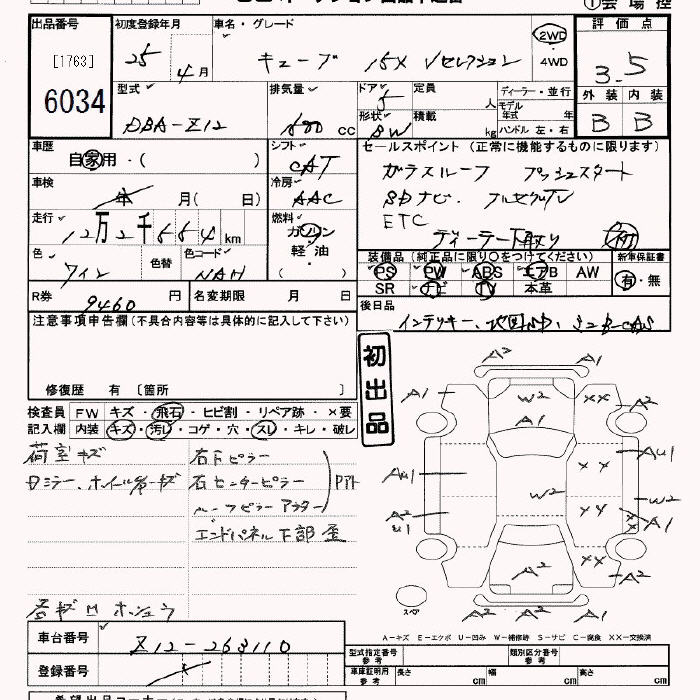 出品番号 初度登録年月 車名・グレード ①会場控
[1763] 25 4月 キューブ 15X Vセレクション 2WD 4WD 評価点 3.5
6034 型式 排気量 ドア 5 定員 人 ディーラー・並行 外装 内装
DBA-Z12 1500 cc 形状 BW 積載 kg モデル年式 年 B B
ハンドル 左・右
車歴 自家用・( ) シフト CAT セールスポイント (正常に機能するものに限ります)
車検 年 月( 日) 冷房 AAC ガラスルーフ プッシュスタート
SDナビ. フルセグTV
走行 12万2千554km 燃料 ガソリン 軽・油 ( ) ETC
ディーラー下取り
色 ワイン 色替 色コード NAH 装備品 (純正品に限り○をつけてください) 新車保証書
PS PW ABS エアB AW 有・無
SR ナビ TV 本革
R券 9460円 名変期限 月 日 後日品
注意事項申告欄(不具合内容等は具体的に記入して下さい) インテリキー、
初出品
修復歴 有 [箇所 ]
検査員 FW キズ・飛石・ヒビ割・リペア跡・×要
記入欄 内装 キズ・汚レ・コゲ・穴・スレ・キレ・破レ
荷室キズ 右Fピラー
Dミラー、ホイル キズ 右センターピラー
ルーフピラー アウター
エンドパネル下部 歪
A2 A1
A1 W2 XX A2
A1
AU1 XX AU1
W2 W2
A2 U1 A1
XX A2
A2
スペア A2 A2 A2
A-キズ E-エクボ U-凹み W-補修跡 S-サビ C-腐食 XX-交換済
車台番号 Z12-263110 型式指定番号 参考 類別区分番号 参考
登録番号 車庫証明用 参考 長さ cm 幅 cm 高さ cm